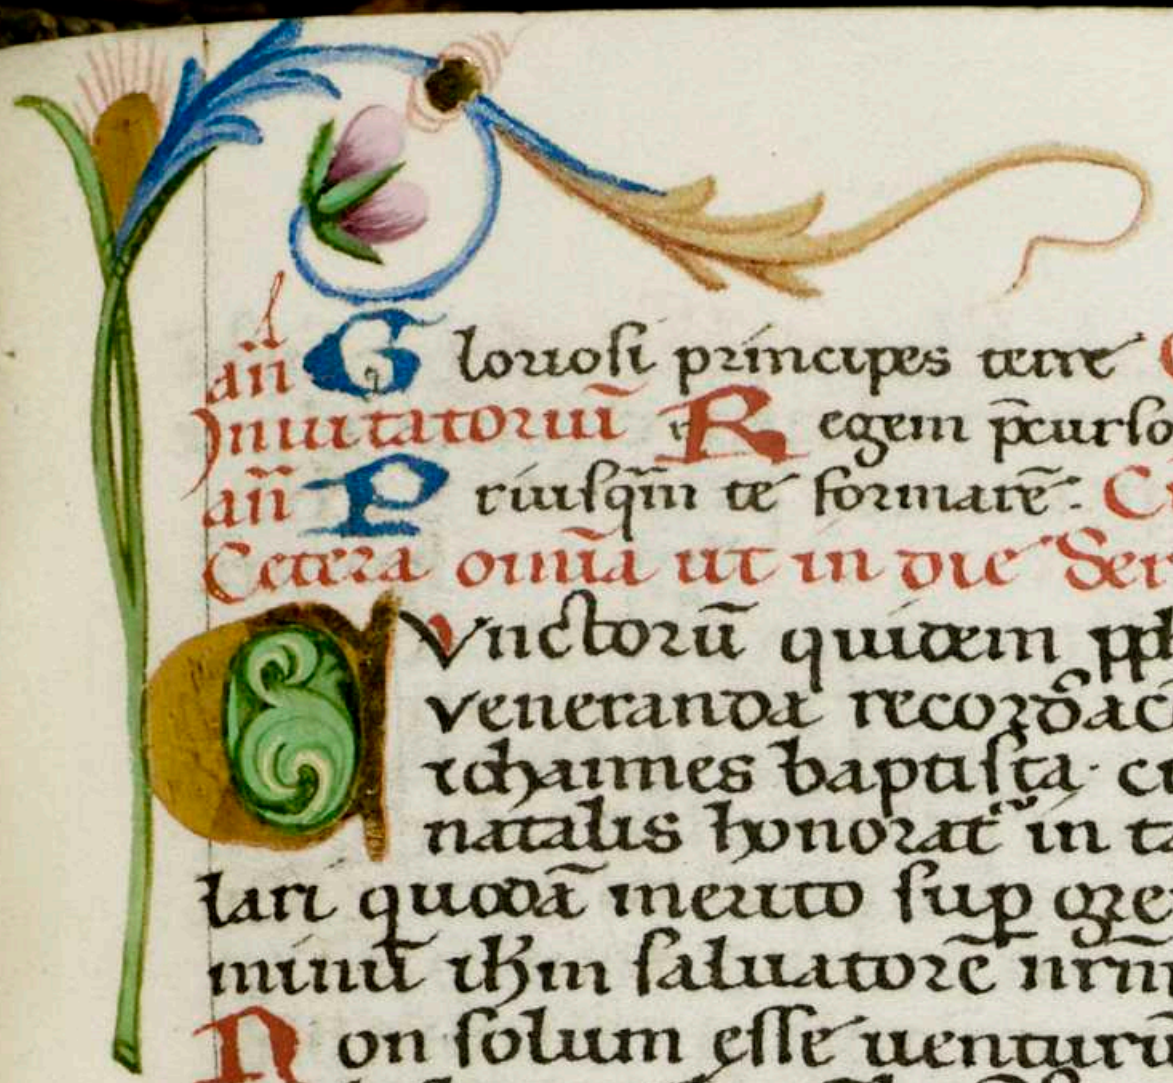 an̄ Gloriosi principes terre
Inuitatoriū Regem p̄curso
an̄ Priusq̄m te formarē.
Cetera om̄ia ut in die Ser
Cvnctorū quidem pp
veneranda recordac
iohannes baptista· c
natalis honorat in ta
lari quodā merito sup gre
minū ihm saluatorē nrm
Non solum esse uenturū